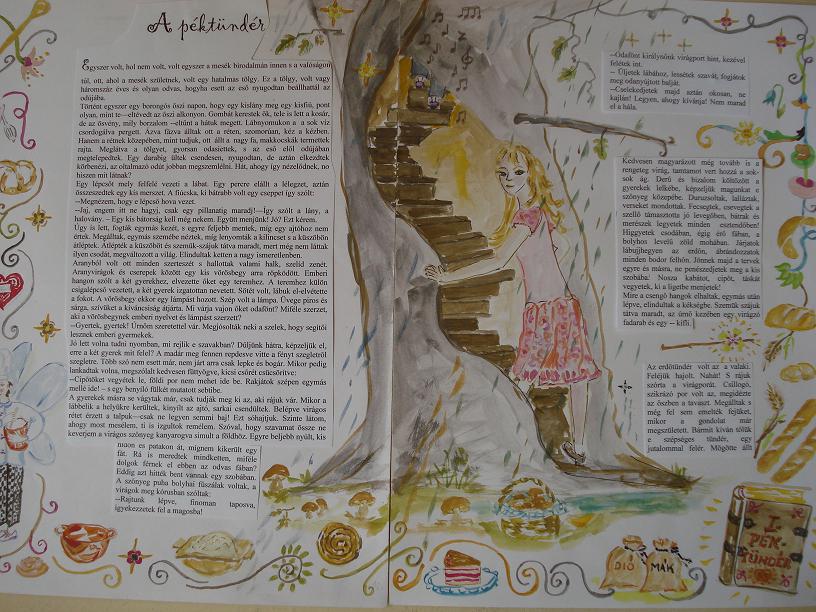 A péktündér
Egyszer volt, hol nem volt, volt egyszer a mesék birodalmán innen s a valóságon
túl, ott, ahol a mesék születnek, volt egy hatalmas tölgy. Ez a tölgy, volt vagy
háromszáz éves és olyan odvas, hogyha esett az eső nyugodtan beállhattál az
odújába.
Történt egyszer egy borongós őszi napon, hogy egy kislány meg egy kisfiú, pont
olyan, mint te—eltévedt az őszi alkonyon. Gombát kerestek ők, tele is lett a kosár,
de az ösvény, mily borzalom –eltűnt a hátuk megett. Lábnyomukon a a sok víz
csordogálva pergett. Ázva fázva álltak ott a réten, szomorúan, kéz a kézben.
Hanem a rétnek közepében, mint tudjuk, ott állt a nagy fa, makkocskák termettek
rajta. Meglátva a tölgyet, gyorsan odasiettek, s az eső elől odújában
megtelepedtek. Egy darabig ültek csendesen, nyugodtan, de aztán elkezdtek
körbenézni, az oltalmazó odút jobban megszemlélni. Hát, ahogy így nézelődnek, no
hiszen mit látnak?
Egy lépcsőt mely felfelé vezeti a lábat. Egy percre elállt a lélegzet, aztán
összeszedtek egy kis merszet. A fiúcska, ki bátrabb volt egy cseppet így szólt:
--Megnézem, hogy e lépcső hova vezet.
--Jaj, engem itt ne hagyj, csak egy pillanatig maradj!—Így szólt a lány, a
halovány. –Egy kis bátorság kell még nekem. Együtt menjünk! Jó? Ezt kérem.
Úgy is lett, fogták egymás kezét, s egyre feljebb mentek, míg egy ajtóhoz nem
értek. Megálltak, egymás szemébe néztek, míg lenyomták a kilincset s a küszöbön
átléptek. Átlépték a küszöböt és szemük-szájuk tátva maradt, mert még nem láttak
ilyen csodát, megváltozott a világ. Elindultak ketten a nagy ismeretlenben.
Aranyból volt ott minden szerteszét s hallottak valami halk, szelíd zenét.
Aranyvirágok és cserepek között egy kis vörösbegy arra röpködött. Emberi
hangon szólt a két gyerekhez, elvezette őket egy teremhez. A teremhez külön
csigalépcső vezetett, a két gyerek izgatottan nevetett. Sötét volt, lábuk el-elvétette
a fokot. A vörösbegy ekkor egy lámpást hozott. Szép volt a lámpa. Üvege piros és
sárga, szívüket a kíváncsiság átjárta. Mi várja vajon őket odafönt? Miféle szerzet,
aki a vörösbegynek emberi nyelvet és lámpást szerzett?
--Gyertek, gyertek! Úrnőm szeretettel vár. Megjósolták neki a szelek, hogy segítői
lesznek emberi gyermekek.
Jó lett volna tudni nyomban, mi rejlik e szavakban? Dőljünk hátra, képzeljük el,
erre a két gyerek mit felel? A madár meg fennen repdesve vitte a fényt szegletről
szegletre. Több szó nem esett már, nem járt arra csak lepke és bogár. Mikor pedig
lankadtak volna, megszólalt kedvesen füttyögve, kicsi csőrét csücsörítve:
--Cipőtöket vegyétek le, földi por nem mehet ide be. Rakjátok szépen egymás
mellé ide! – s egy benyíló fülkét mutatott sebtibe.
A gyerekek másra se vágytak már, csak tudják meg ki az, aki rájuk vár. Mikor a
lábbelik a helyükre kerültek, kinyílt az ajtó, sarkai csendültek. Belépve virágos
rétet érzett a talpuk—csak ne legyen semmi baj! Ezt sóhajtjuk. Szinte látom,
ahogy most mesélem, ti is izgultok remélem. Szóval, hogy szavamat össze ne
keverjem a virágos szőnyeg kanyarogva simult a földhöz. Egyre beljebb nyúlt, kis
fát. Rá is meredtek mindketten, miféle
dolgok férnek el ebben az odvas fában?
Eddig azt hitték bent vannak egy szobában.
A szőnyeg puha bolyhai fűszálak voltak, a
virágok meg kórusban szóltak:
--Rajtunk lépve, finoman taposva,
igyekezzetek fel a magosba!
--Odafönt királynőnk virágport hint, kezével
felétek int.
-- Üljetek lábához, lessétek szavát, fogjátok
meg odanyújtott balját.
--Cselekedjetek majd aztán okosan, ne
kajlán! Legyen, ahogy kívánja! Nem marad
el a hála.
Kedvesen magyarázott még tovább is a
rengeteg virág, tantámot vert hozzá a sok-
sok ág. Derű és bizalom költözött a
gyerekek lelkébe, képzeljük magunkat e
szőnyeg közepébe. Duruzsoltak, lalláztak,
verseket mondottak. Fecsegtek, csevegtek a
szellő támasztotta jó levegőben, bátrak és
merészek legyetek minden esztendőben!
Higgyetek csodában, égig érő fában, a
bolyhos levelű zöld mohában. Járjatok
lábujjhegyen az erdőn, ábrándozzatok
minden bodor felhőn. Jönnek majd a tervek
egyre és másra, ne penészedjetek meg a kis
szobába! Nosza kabátot, cipőt, táskát
vegyetek, ki a ligetbe menjetek!
Mire a csengő hangok elhaltak, egymás után
lépve, elindultak a kékségbe. Szemük szájuk
tátva maradt, az úrnő kezében egy virágzó
fadarab és egy — kifli.
Az erdőtündér volt az a valaki.
Feléjük hajolt. Nahát! S rájuk
szórta a virágporát. Csillogó,
szikrázó por volt az, megidézte
az őszben a tavaszt. Megálltak s
még fel sem emelték fejüket,
mikor a gondolat már
megszületett. Bármit kíván tőlük
e szépséges tündér, egy
jutalommal felér. Mögötte állt
DIÓ
MÁK
I.
PÉK
TÜNDÉR